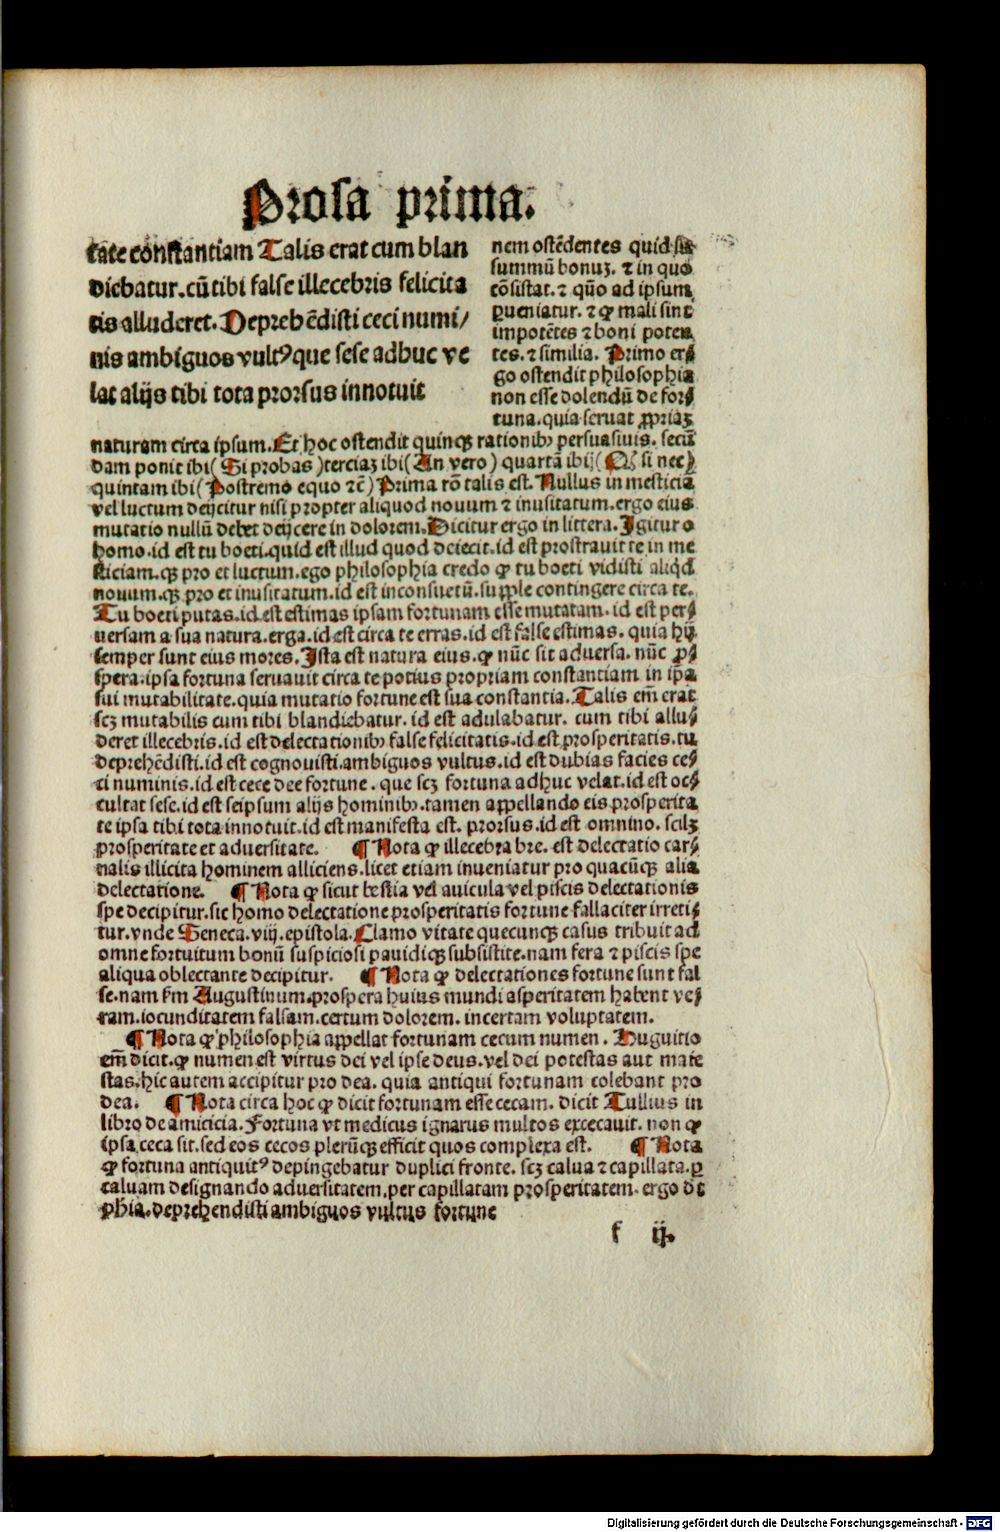 Prosa prima.
tate constantiam Talis erat cum blan
diebatur.cū tibi false illecebris felicita
tis alluderet. Deprehēdisti ceci numi/
nis ambiguos vultꝰ que sese adhuc ve
lat alijs tibi tota prorsus innotuit
nem ostēdentes quid sit
summū bonuꝫ. ⁊ in quo
cōsistat. ⁊ quō ad ipsum
ꝑueniatur. ⁊ ꝙ mali sint
impotētes ⁊ boni poten
tes. ⁊ similia. Primo er⸗
go ostendit philosophia
non esse dolendū de for⸗
tuna. quia seruat ꝓpriaꝫ
naturam circa ipsum. Et hoc ostendit quinqꝫ rationibꝫ persuasiuis. secū
dam ponit ibi (Si probas) terciaꝫ ibi (An vero) quartā ibi (Qꝫ si nec)
quintam ibi (Postremo equo ⁊c̄) Prima rō talis est. Nullus in mesticia
vel luctum deijcitur nisi propter aliquod nouum ⁊ inusitatum. ergo eius
mutatio nullū debet deijcere in dolorem. Dicitur ergo in littera. Igitur o
homo. id est tu boeti. quid est illud quod deiecit. id est prostrauit te in me
sticiam. qꝫ pro et luctum. ego philosophia credo ꝙ tu boeti vidisti aliqd̄
nouum. qꝫ pro et inusitatum. id est inconsuetū. supple contingere circa te.
Tu boeti putas. id est estimas ipsam fortunam esse mutatam. id est per⸗
uersam a sua natura. erga. id est circa te erras. id est false estimas. quia hij
semper sunt eius mores. Ista est natura eius. ꝙ nūc sit aduersa. nūc ꝓ⸗
spera. ipsa fortuna seruauit circa te potius propriam constantiam in ip̄a
sui mutabilitate. quia mutatio fortune est sua constantia. Talis em̄ erat
scꝫ mutabilis cum tibi blandiebatur. id est adulabatur. cum tibi allu⸗
deret illecebris. id est delectationibꝫ false felicitatis. id est prosperitatis. tu
deprehēdisti. id est cognouisti. ambiguos vultus. id est dubias facies ce⸗
ci numinis. id est cece dee fortune. que scꝫ fortuna adhuc velat. id est oc⸗
cultat sese. id est seipsum alijs hominibꝫ. tamen appellando eis prosperita
te ipsa tibi tota innotuit. id est manifesta est. prorsus. id est omnino. scilꝫ
prosperitate et aduersitate. ¶ Nota ꝙ illecebra bre. est delectatio car⸗
nalis illicita hominem alliciens. licet etiam inueniatur pro quacūqꝫ alia
delectatione. ¶ Nota ꝙ sicut bestia vel auicula vel piscis delectationis
spe decipitur. sic homo delectatione prosperitatis fortune fallaciter irreti⸗
tur. vnde Seneca. viij. epistola. Clamo vitate quecunqꝫ casus tribuit ad
omne fortuitum bonū suspiciosi pauidiqꝫ subsistite. nam fera ⁊ piscis spe
aliqua oblectante decipitur. ¶ Nota ꝙ delectationes fortune sunt fal
se. nam ẜm Augustinum. prospera huius mundi asperitatem habent ve⸗
ram. iocunditatem falsam. certum dolorem. incertam voluptatem.
¶ Nota ꝙ philosophia appellat fortunam cecum numen. Huguitio
em̄ dicit. ꝙ numen est virtus dei vel ipse deus. vel dei potestas aut maie
stas. hic autem accipitur pro dea. quia antiqui fortunam colebant pro
dea. ¶ Nota circa hoc ꝙ dicit fortunam esse cecam. dicit Tullius in
libro de amicicia. Fortuna vt medicus ignarus multos excecauit. non ꝙ
ipsa ceca sit. sed eos cecos plerūqꝫ efficit quos complexa est. ¶ Nota
ꝙ fortuna antiquitꝰ depingebatur duplici fronte. scꝫ calua ⁊ capillata. ꝑ
caluam designando aduersitatem. per capillatam prosperitatem. ergo dt
phia. deprehendisti ambiguos vultus fortune
f ij.
Digitalisierung gefördert durch die Deutsche Forschungsgemeinschaft - DFG